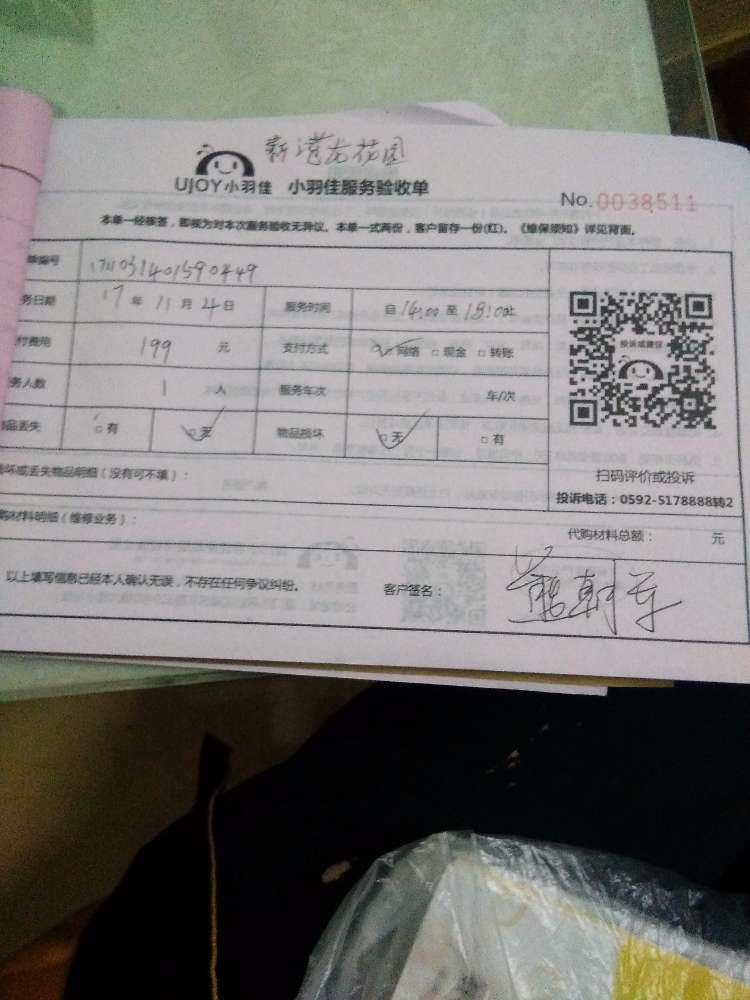 新港龙花园
UJOY小羽佳 小羽佳服务验收单
No.0038511
本单一经核签，即视为对本次服务验收无异议。本单一式两份，客户留存一份(红)。《维保须知》详见背面。
单编号
务日期 17年11月4日 服务时间 自14:00至18:00止
付费用 199元 支付方式 □网络 □现金 □转账
务人数 1人 服务车次 车/次
品丢失 □有 □无 物品损坏 □无 □有
投诉或建议
扫码评价或投诉
投诉电话：0592-5178888转2
损坏或丢失物品明细（没有可不填）：
购材料明细（维修业务）： 代购材料总额： 元
以上填写信息已经本人确认无误，不存在任何争议纠纷。 客户签名：